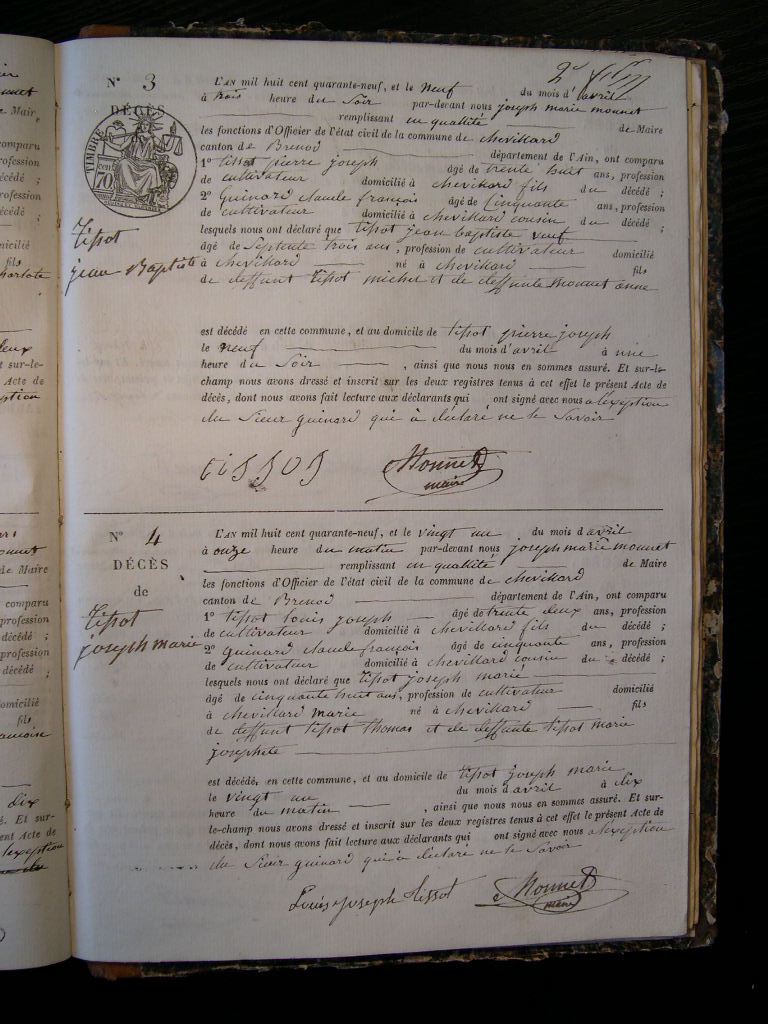 2e
N° 3
DÉCÈS
TIMBRE
70
tissot
jean Baptiste
L'AN mil huit cent quarante-neuf, et le neuf du mois d'avril
à trois heure du Soir par-devant nous joseph marie monnet
remplissant en qualitté de Maire
les fonctions d'Officier de l'état civil de la commune de chevillard
canton de Brenod département de l'Ain, ont comparu
1° tissot pierre joseph âgé de trente huit ans, profession
de cultivateur domicilié à chevillard fils du décédé ;
2° Guinard claude françois âgé de Cinquante ans, profession
de cultivateur domicilié à chevillard cousin du décédé ;
lesquels nous ont déclaré que tissot jean baptiste veuf
âgé de Septente trois ans, profession de cultivateur domicilié
à chevillard né à chevillard fils
de deffunt tissot michel et de deffunte monnet anne
est décédé en cette commune, et au domicile de tissot pierre joseph
le neuf du mois d'avril à une
heure du Soir , ainsi que nous nous en sommes assuré. Et sur-le-
champ nous avons dressé et inscrit sur les deux registres tenus à cet effet le présent Acte de
décès, dont nous avons fait lecture aux déclarants qui ont signé avec nous a lexeption
du Sieur guinard qui à déclaré ne le Savoir
tissot Monnet
maire
N° 4
DÉCÈS
de
tissot
joseph marie
L'AN mil huit cent quarante-neuf, et le vingt un du mois d'avril
à onze heure du matin par-devant nous joseph marie monnet
remplissant en qualitté de Maire
les fonctions d'Officier de l'état civil de la commune de chevillard
canton de Brenod département de l'Ain, ont comparu
1° tissot louis joseph âgé de trente deux ans, profession
de cultivateur domicilié à chevillard fils du décédé ;
2° guinard claude françois âgé de cinquante ans, profession
de cultivateur domicilié à chevillard cousin du décédé ;
lesquels nous ont déclaré que tissot joseph marie
âgé de cinquante huit ans, profession de cultivateur domicilié
à chevillard marié né à chevillard fils
de deffunt tissot thomas et de deffunte tissot marie
josephte
est décédé, en cette commune, et au domicile de tissot joseph marie
le vingt un du mois d'avril à dix
heure du matin , ainsi que nous nous en sommes assuré. Et sur-
le-champ nous avons dressé et inscrit sur les deux registres tenus à cet effet le présent Acte de
décès, dont nous avons fait lecture aux déclarants qui ont signé avec nous a lexeption
du Sieur guinard qui à declaré ne le Savoir
Louis joseph tissot Monnet
maire